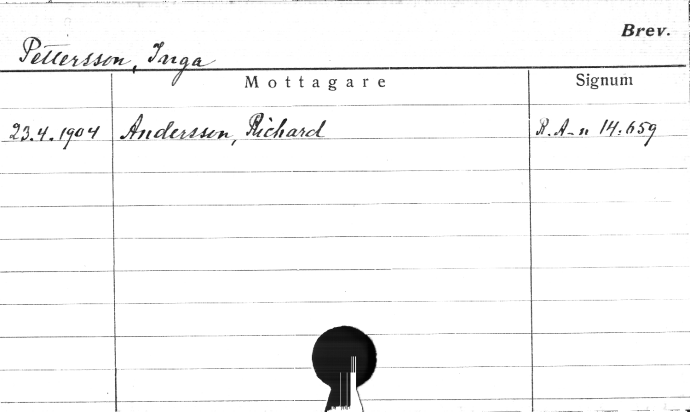 Brev.
Pettersson, Inga
Mottagare Signum
23.4.1904 Andersson, Richard R.A-n 14:659